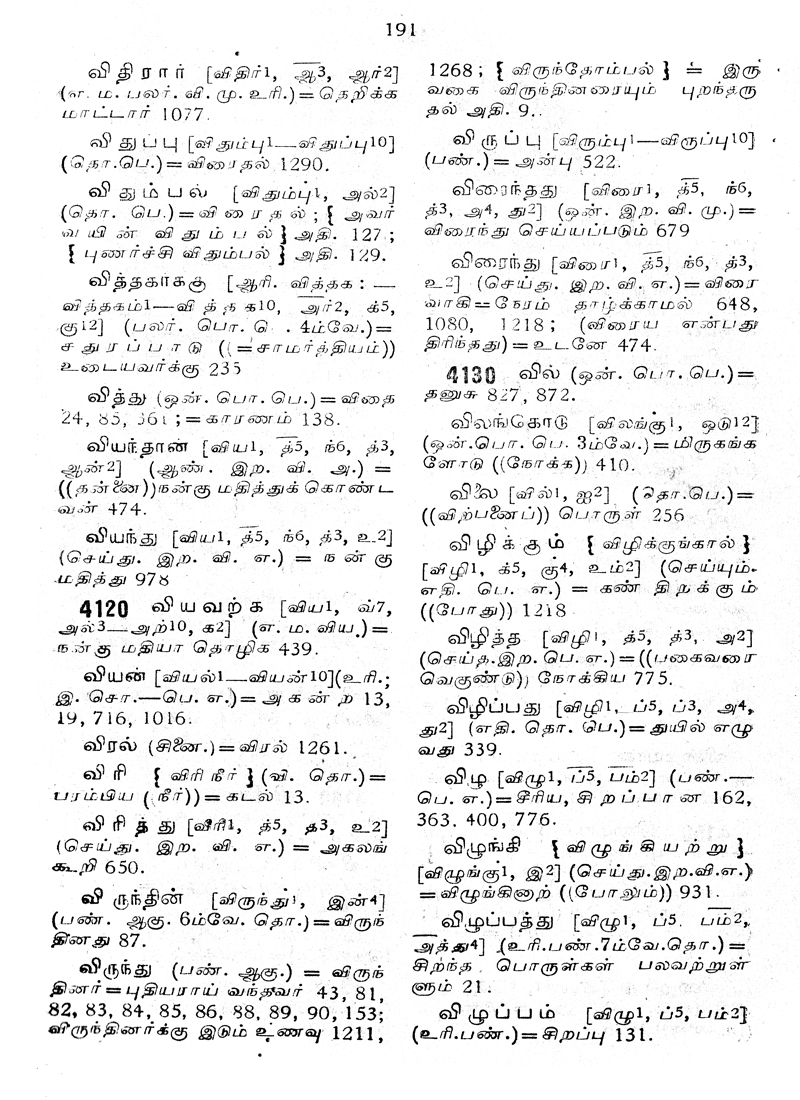 191
விதிரார் [விதிர்1, ஆ3, ஆர்2]
(எ. ம. பலர். வி. மு. உரி.)=தெறிக்க
மாட்டார் 1077.
விதுப்பு [விதும்பு1—விதுப்பு10]
(தொ.பெ.)=விரைதல் 1290.
விதும்பல் [விதும்பு1, அல்2]
(தொ. பெ.)=விரைதல்; { அவர்
வயின் விதும்பல் } அதி. 127;
{ புணர்ச்சி விதும்பல் } அதி. 129.
வித்தகர்க்கு [ஆரி. வித்தக: —
வித்தகம்1—வித்தக10, அர்2, க்5,
கு12] (பலர். பொ. பெ. 4ம்வே.)=
சதுரப்பாடு ((=சாமர்த்தியம்))
உடையவர்க்கு 235
வித்து (ஒன். பொ. பெ.)=விதை
24, 85, 361; =காரணம் 138.
வியந்தான் [விய1, த்5, ந்6, த்3,
ஆன்2] (ஆண். இற. வி. அ.) =
((தன்னை))நன்கு மதித்துக் கொண்ட
வன் 474.
வியந்து [விய1, த்5, ந்6, த்3, உ2]
(செய்து. இற. வி. எ.) = நன்கு
மதித்து 978
4120 வியவற்க [விய1, வ்7,
அல்3—அற்10, க2] (எ. ம. விய.)=
நன்கு மதியா தொழிக 439.
வியன் [வியல்1—வியன்10](உரி.;
இ. சொ.—பெ. எ.)=அகன்ற 13,
19, 716, 1016.
விரல் (சினை.)=விரல் 1261.
விரி { விரிநீர் } (வி. தொ.)=
பரம்பிய ((நீர்))=கடல் 13.
விரித்து [விரி1, த்5, த்3, உ2]
(செய்து. இற. வி. எ.) = அகலங்
கூறி 650.
விருந்தின் [விருந்து1, இன்4]
(பண். ஆகு. 6ம்வே. தொ.)=விருந்
தினது 87.
விருந்து (பண். ஆகு.) = விருந்
தினர்=புதியராய் வந்தவர் 43, 81,
82, 83, 84, 85, 86, 88, 89, 90, 153;
விருந்தினர்க்கு இடும் உணவு 1211,
1268; { விருந்தோம்பல் } = இரு
வகை விருந்தினரையும் புறந்தரு
தல் அதி. 9.
விருப்பு [விரும்பு1—விருப்பு10]
(பண்.)=அன்பு 522.
விரைந்தது [விரை1, த்5, ந்6,
த்3, அ4, து2] (ஒன். இற. வி. மு.)=
விரைந்து செய்யப்படும் 679
விரைந்து [விரை1, த்5, ந்6, த்3,
உ2] (செய்து. இற. வி. எ.)=விரை
வாகி=நேரம் தாழ்க்காமல் 648,
1080, 1218; (விரைய என்பது
திரிந்தது)=உடனே 474.
4130 வில் (ஒன். பொ. பெ.)=
தனுசு 827, 872.
விலங்கொடு [விலங்கு1, ஒடு12]
(ஒன்.பொ. பெ. 3ம்வே.)=மிருகங்க
ளோடு ((நோக்க)) 410.
விலை [வில்1, ஐ2] (தொ.பெ.)=
((விற்பனைப்)) பொருள் 256
விழிக்கும் { விழிக்குங்கால் }
[விழி1, க்5, கு4, உம்2] (செய்யும்.
எதி. பெ. எ.) = கண் திறக்கும்
((போது)) 1218
விழித்த [விழி1, த்5, த்3, அ2]
(செய்த.இற. பெ. எ.)=((பகைவரை
வெகுண்டு)) நோக்கிய 775.
விழிப்பது [விழி1, ப்5, ப்3, அ4,
து2] (எதி. தொ. பெ.)=துயில் எழு
வது 339.
விழு [விழு1, ப்5, பம்2] (பண்.—
பெ. எ.)=சீரிய, சிறப்பான 162,
363. 400, 776.
விழுங்கி { விழுங்கியற்று }
[விழுங்கு1, இ2] (செய்து.இற.வி.எ.)
=விழுங்கினாற் ((போலும்)) 931.
விழுப்பத்து [விழு1, ப்5, பம்2,
அத்து4] (உரி.பண்.7ம்வே.தொ.)=
சிறந்த பொருள்கள் பலவற்றுள்
ளும் 21.
விழுப்பம் [விழு1, ப்5, பம்2]
(உரி.பண்.)=சிறப்பு 131.